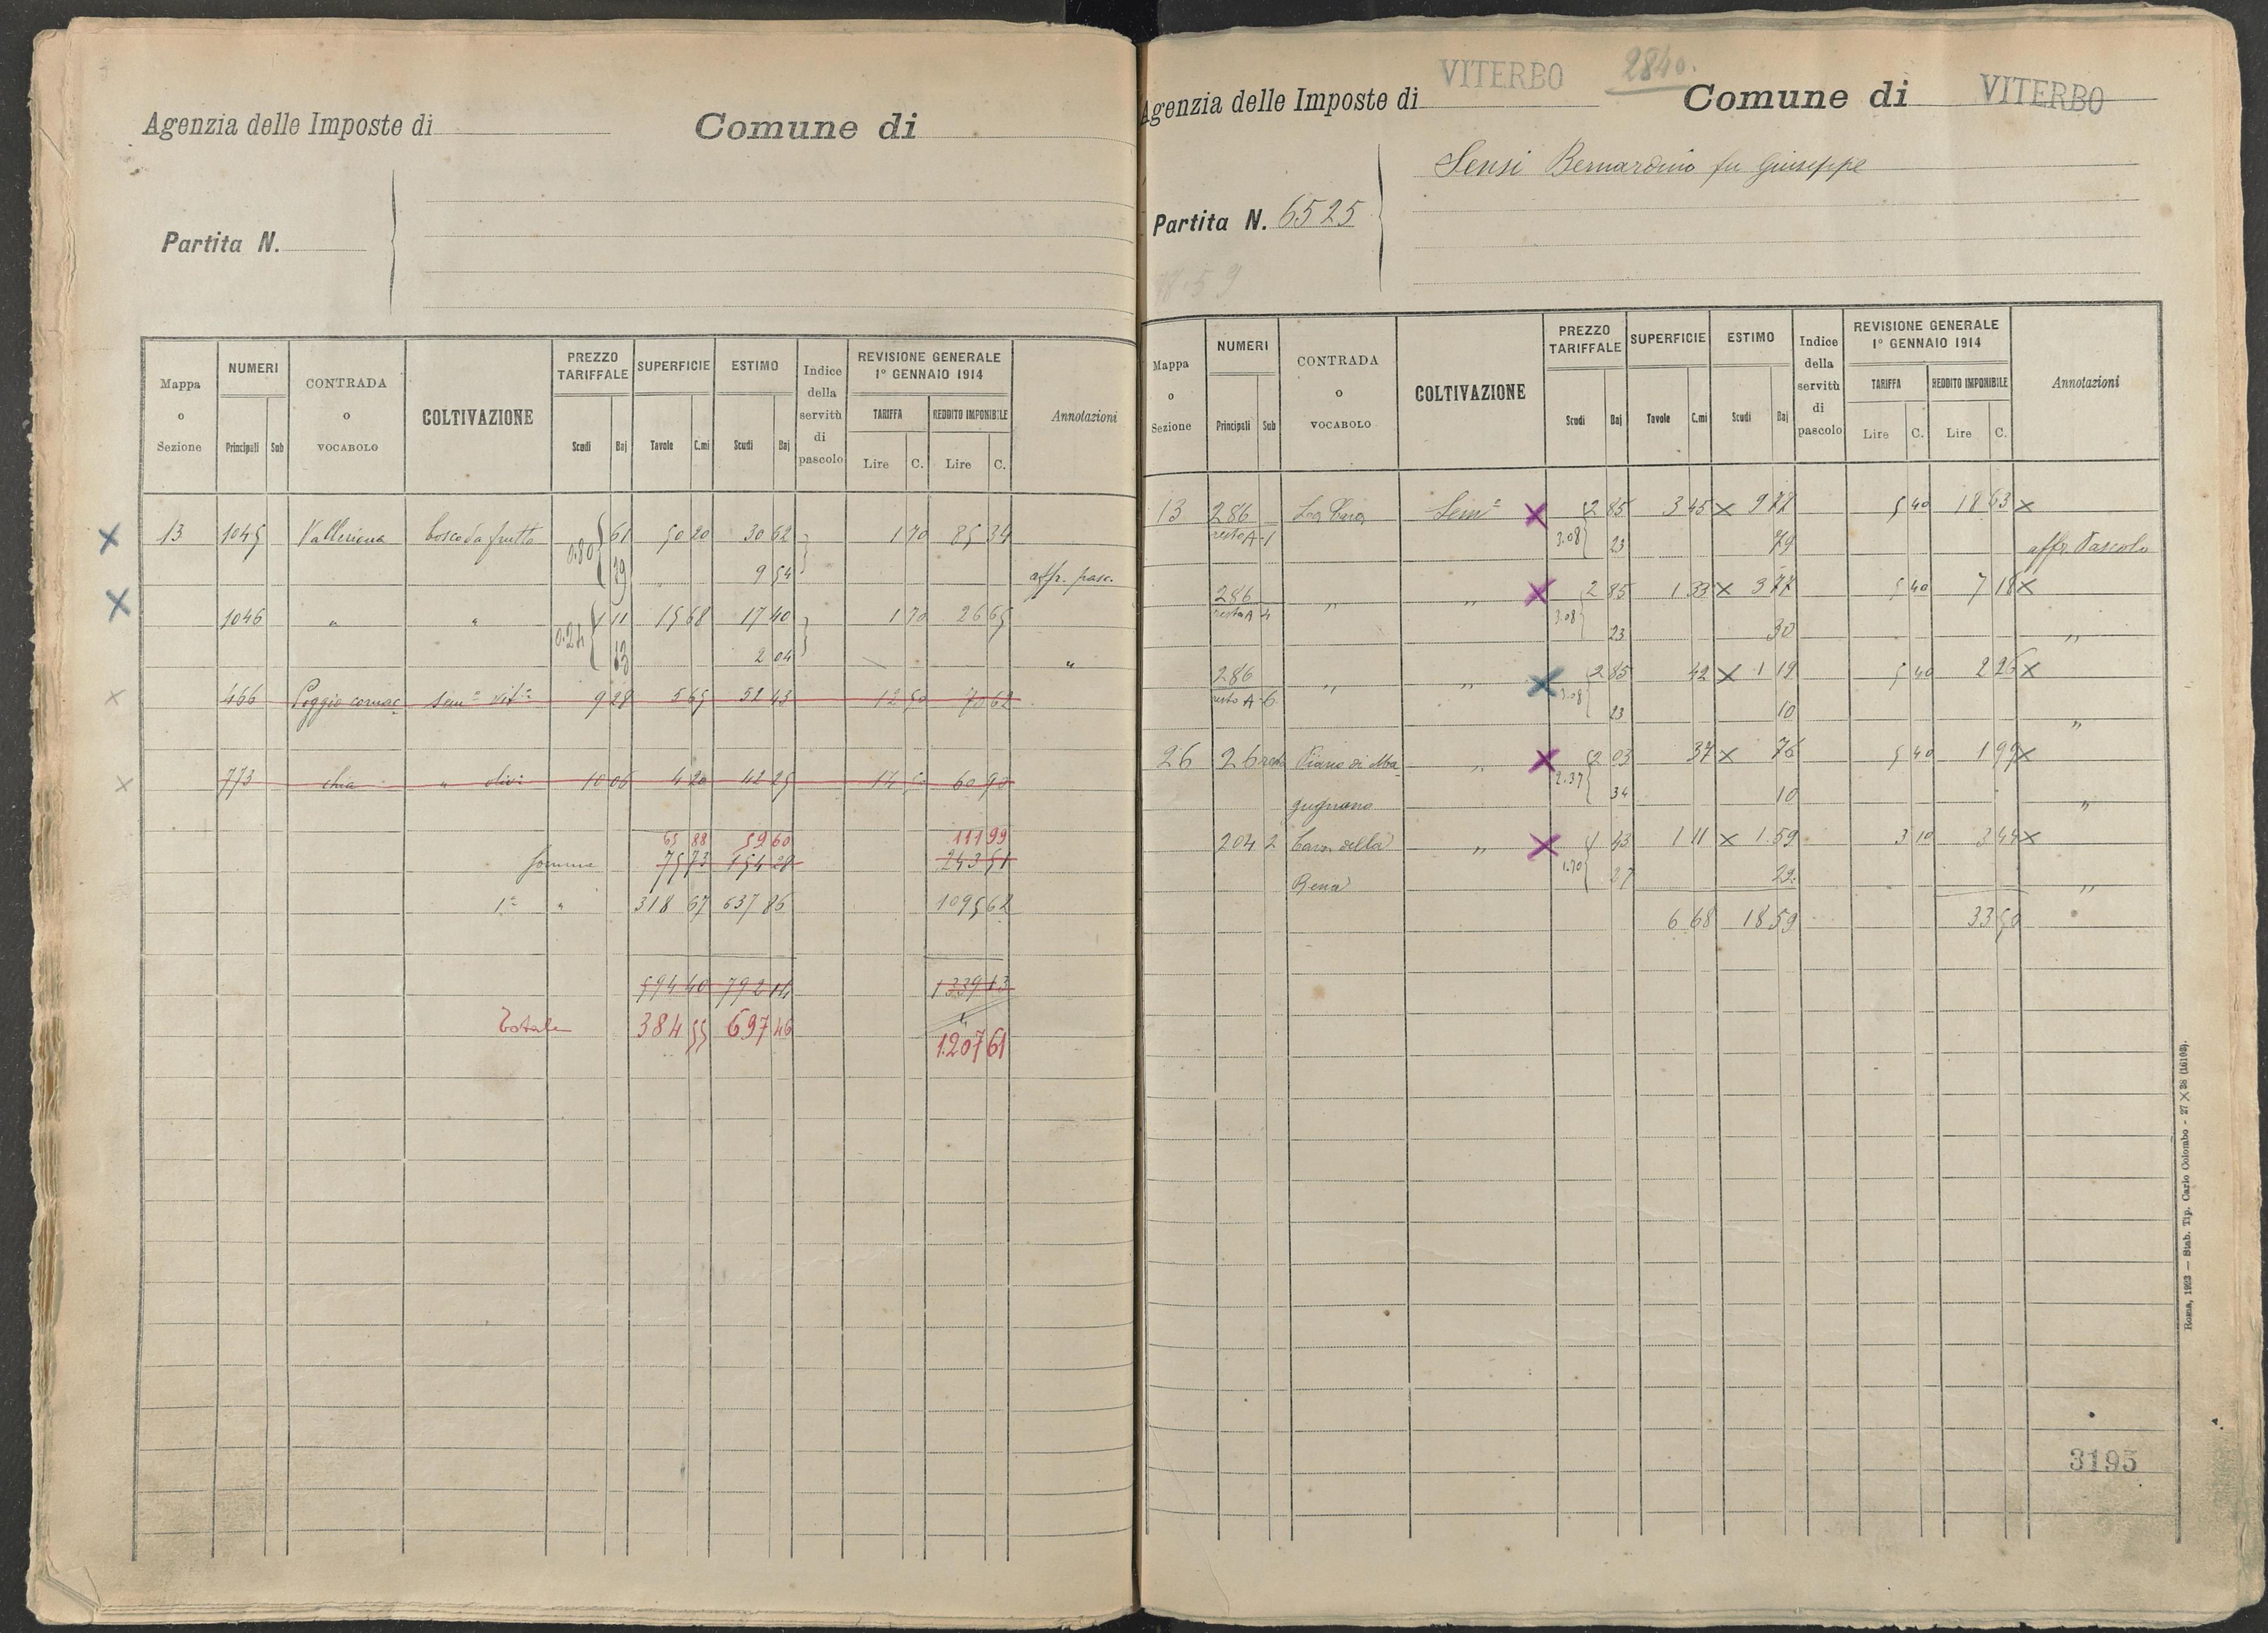 Agenzia delle Imposte di
Comune di
Partita N.
Mappa o Sezione
NUMERI
Principali Sub
CONTRADA o VOCABOLO
COLTIVAZIONE
PREZZO TARIFFALE
Scudi Baj
SUPERFICIE
Tavole C.mi
ESTIMO
Scudi Baj
Indice della servitù di pascolo
REVISIONE GENERALE 1° GENNAIO 1914
TARIFFA
Lire C.
REDDITO IMPONIBILE
Lire C.
Annotazioni
13 1045 bosco da frutto 61 50 20 30 62 1 70 85 34
9 54 affr. pasc.
1046 " " 1 11 15 68 17 40 1 70 26 65
13 2 04 "
466 9 28 5 65 52 43 12 50 70 62
773 chia " 10 06 4 20 42 25 14 50 60 90
65 88 59 60 111 99
Somma 75 73 154 28 243 51
1ª " 318 67 637 86 1095 62
594 40 792 14 1339 13
Totale 384 55 697 46 "
1207 61
Agenzia delle Imposte di VITERBO 2840. Comune di VITERBO
Sensi Bernardino fu Giuseppe
Partita N. 6525
18.59
Mappa o Sezione
NUMERI
Principali Sub
CONTRADA o VOCABOLO
COLTIVAZIONE
PREZZO TARIFFALE
Scudi Baj
SUPERFICIE
Tavole C.mi
ESTIMO
Scudi Baj
Indice della servitù di pascolo
REVISIONE GENERALE 1° GENNAIO 1914
TARIFFA
Lire C.
REDDITO IMPONIBILE
Lire C.
Annotazioni
13 286 Semº × 2 85 3 45 × 5 40 18 63 ×
resto A-1 3.08 23 79 affr. Pascolo
286 " " × 2 85 1 33 × 5 40 7 18 ×
resto A 4 3.08 23 30 "
286 " " × 2 85 42 × 1 19 5 40 2 26 ×
resto A-6 3.08 23 10 "
26 26 resto Piano di Ma- " × 2 03 37 × 76 5 40 1 99 ×
gugnano 2.37 34 10 "
204 2 Cava della " × 1 43 1 11 × 1.59 3 10 3 44 ×
Rena 1.70 27 "
6 68 18 59 33 50
3195
Roma, 1923 — Stab. Tip. Carlo Colombo - 27 × 38 (16103).